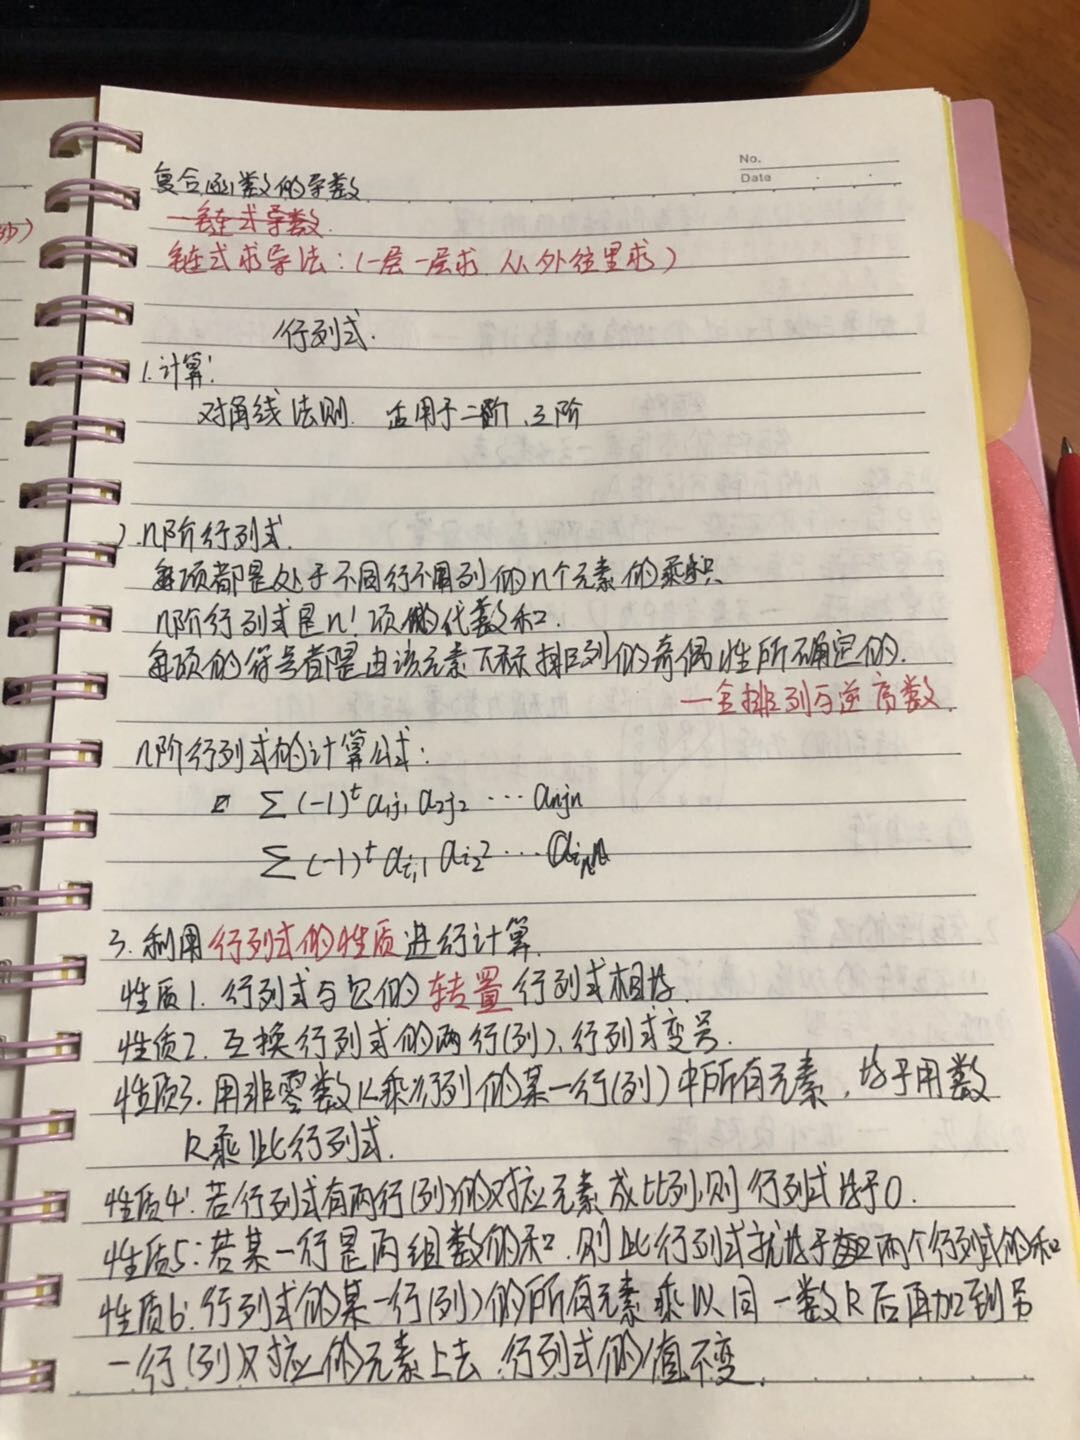 No.
Date
复合函数的导数
链式导数
链式求导法:(一层一层求 从外往里求)
行列式.
1.计算:
对角线法则. 适用于二阶、三阶
2.n阶行列式.
每项都是处于不同行不同列的n个元素的乘积
n阶行列式是n!项的代数和.
每项的符号都是由该元素下标排列的奇偶性所确定的.
—全排列与逆序数.
n阶行列式的计算公式:
∑(-1)ᵗ a₁j₁ a₂j₂ ⋯ anjn
∑(-1)ᵗ ai₁1 ai₂2 ⋯ ainn
3.利用行列式的性质进行计算.
性质1.行列式与它的转置行列式相等.
性质2.互换行列式的两行(列),行列式变号.
性质3.用非零数k乘行列的某一行(列)中所有元素,等于用数
k乘此行列式.
性质4:若行列式有两行(列)的对应元素成比列,则行列式等于0.
性质5:若某一行是两组数的和.则此行列式就等于两个行列式的和
性质6:行列式的某一行(列)的所有元素乘以同一数k后再加到另
一行(列)对应的元素上去.行列式的值不变.